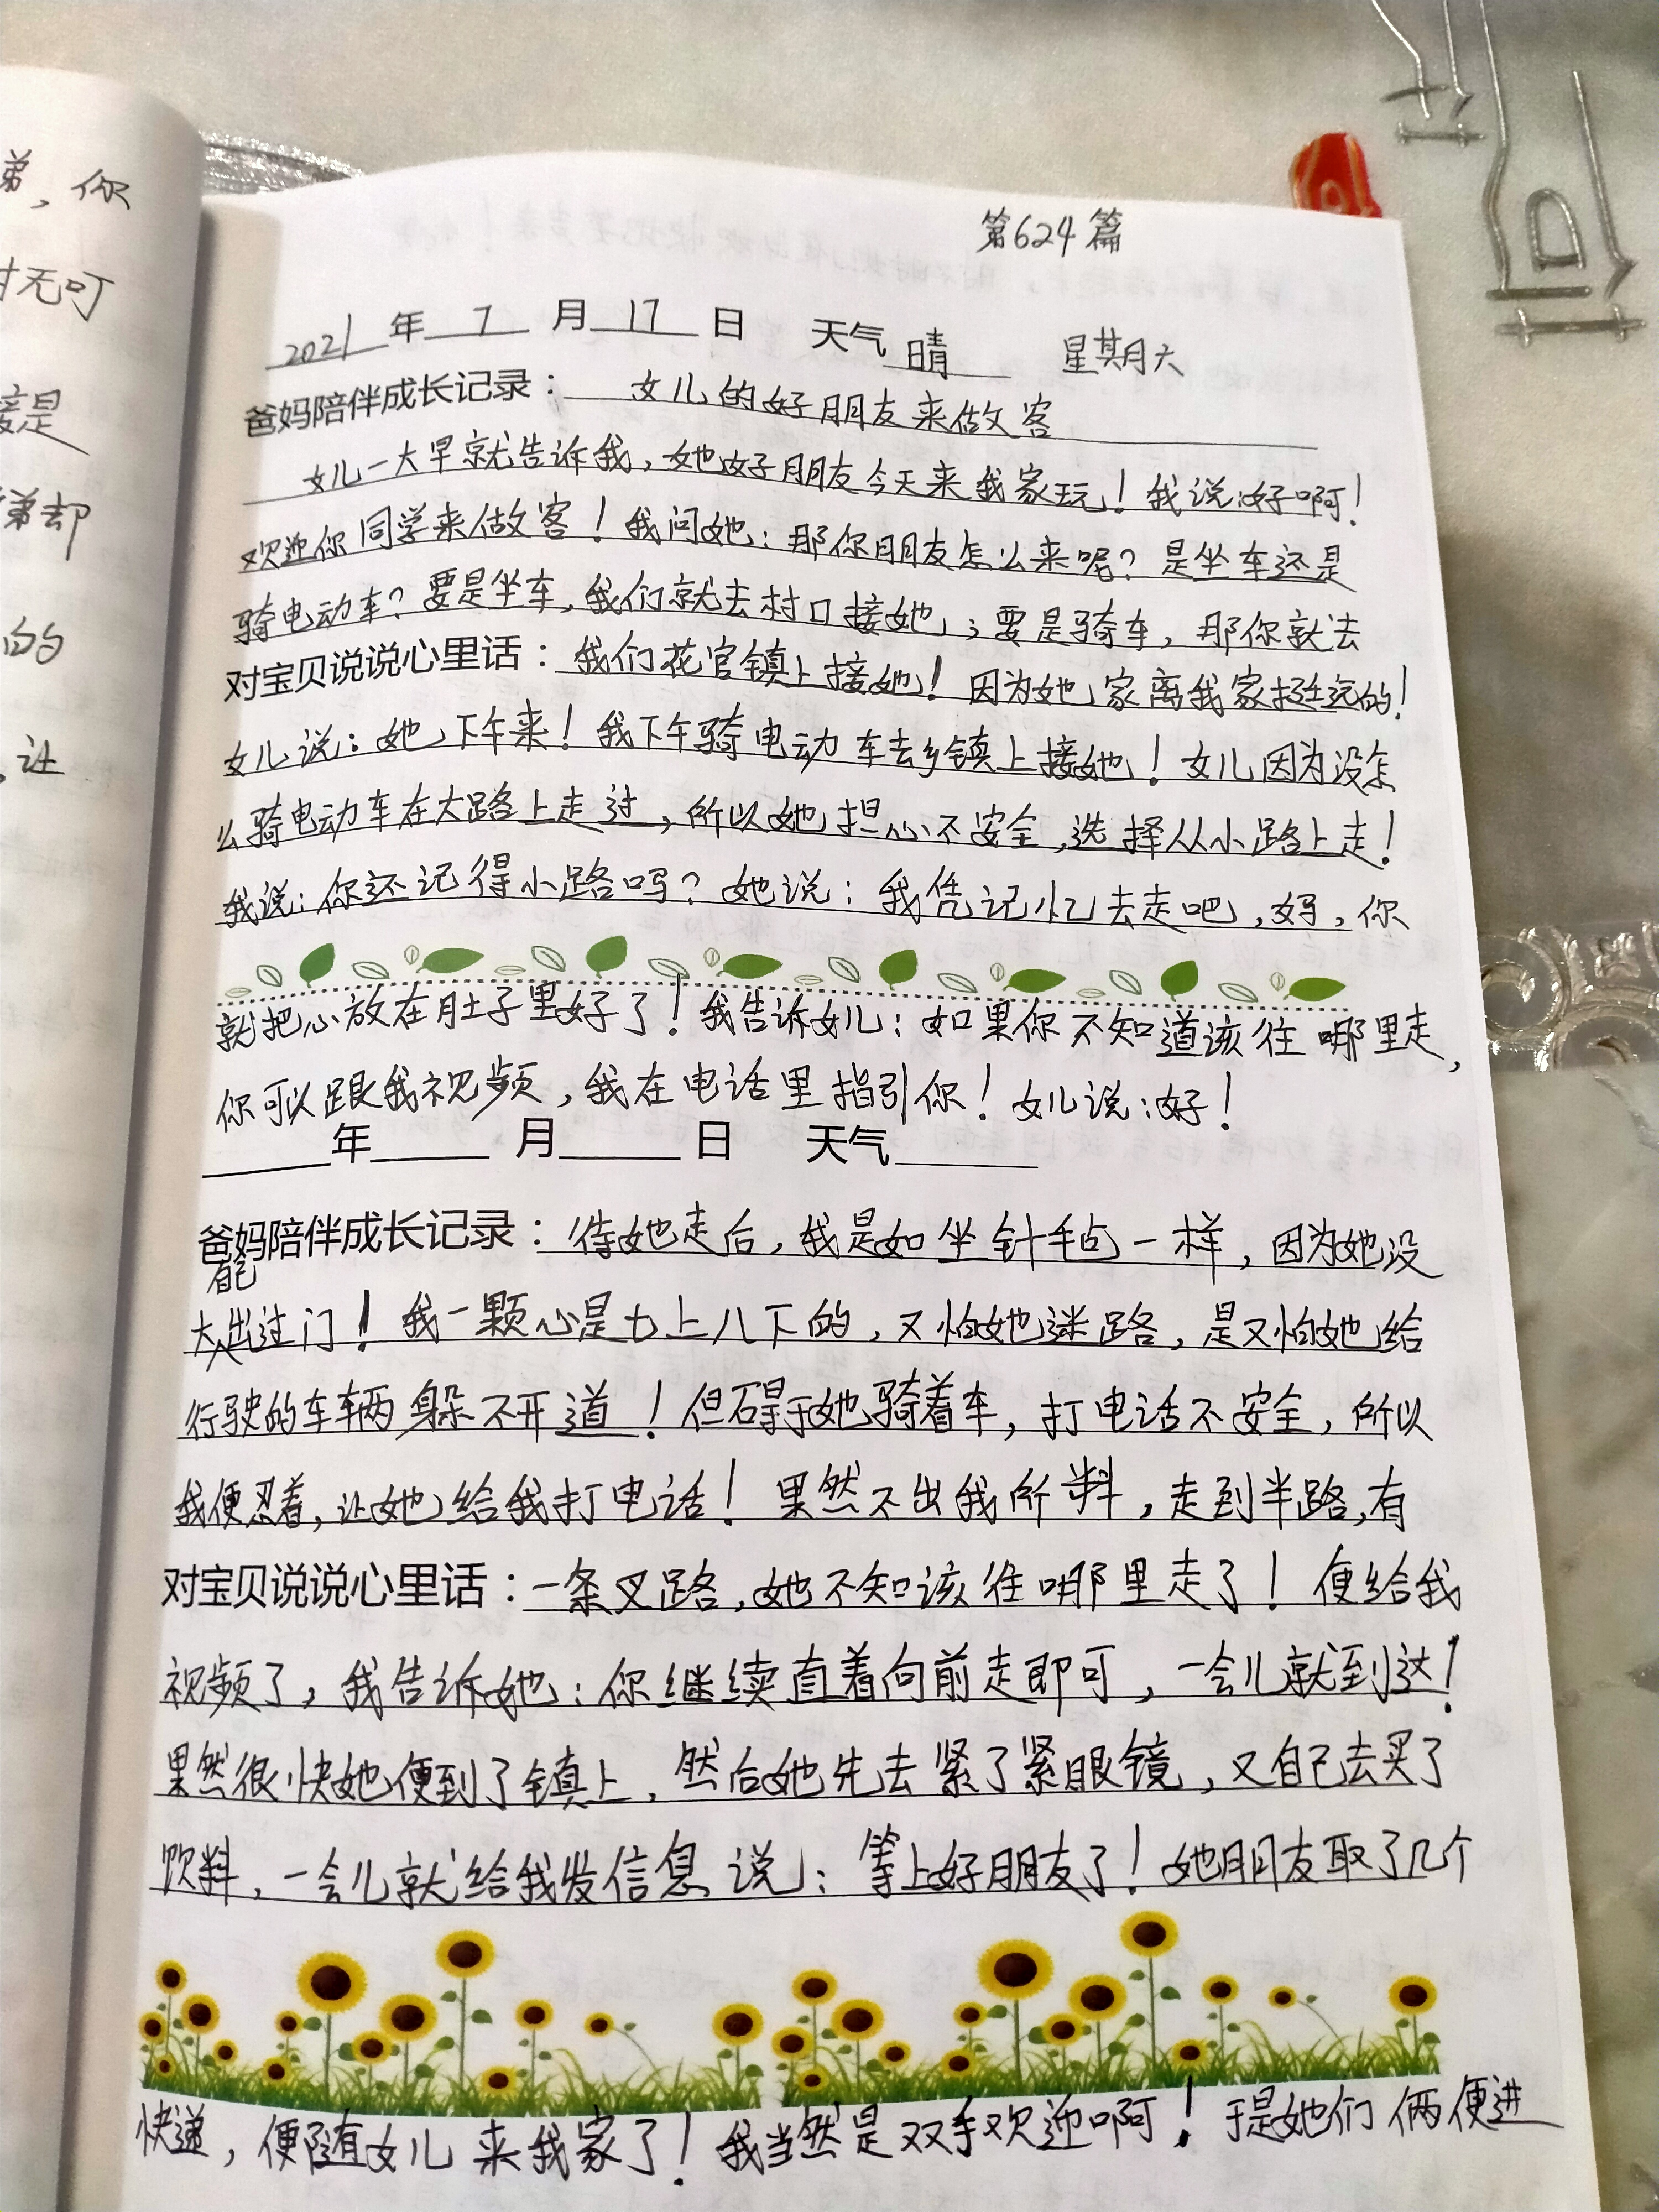 弟，你
无叮
接是
弟却
的
，让
第624篇
2021年 7 月 17 日 天气 晴 星期六
爸妈陪伴成长记录：女儿的好朋友来做客
女儿一大早就告诉我，她好朋友今天来我家玩！我说：好啊！
欢迎你同学来做客！我问她：那你朋友怎么来呢？是坐车还是
骑电动车？要是坐车，我们就去村口接她；要是骑车，那你就去
对宝贝说说心里话：我们花官镇上接她！因为她家离我家挺远的！
女儿说：她下午来！我下午骑电动车去乡镇上接她！女儿因为没怎
么骑电动车在大路上走过，所以她担心不安全，选择从小路上走！
我说：你还记得小路吗？她说：我凭记忆去走吧，妈，你
就把心放在肚子里好了！我告诉女儿：如果你不知道该往哪里走，
你可以跟我视频，我在电话里指引你！女儿说：好！
年 月 日 天气
爸妈陪伴成长记录：待她走后，我是如坐针毡一样，因为她没
大出过门！我一颗心是七上八下的，又怕她迷路，是又怕她给
行驶的车辆躲不开道！但碍于她骑着车，打电话不安全，所以
我便忍着，让她给我打电话！果然不出我所料，走到半路，有
对宝贝说说心里话：一条叉路，她不知该往哪里走了！便给我
视频了，我告诉她：你继续直着向前走即可，一会儿就到达！
果然很快她便到了镇上，然后她先去紧了紧眼镜，又自己去买了
饮料，一会儿就给我发信息说：等上好朋友了！她朋友取了几个
快递，便随着女儿来我家了！我当然是双手欢迎啊！于是她们俩便进